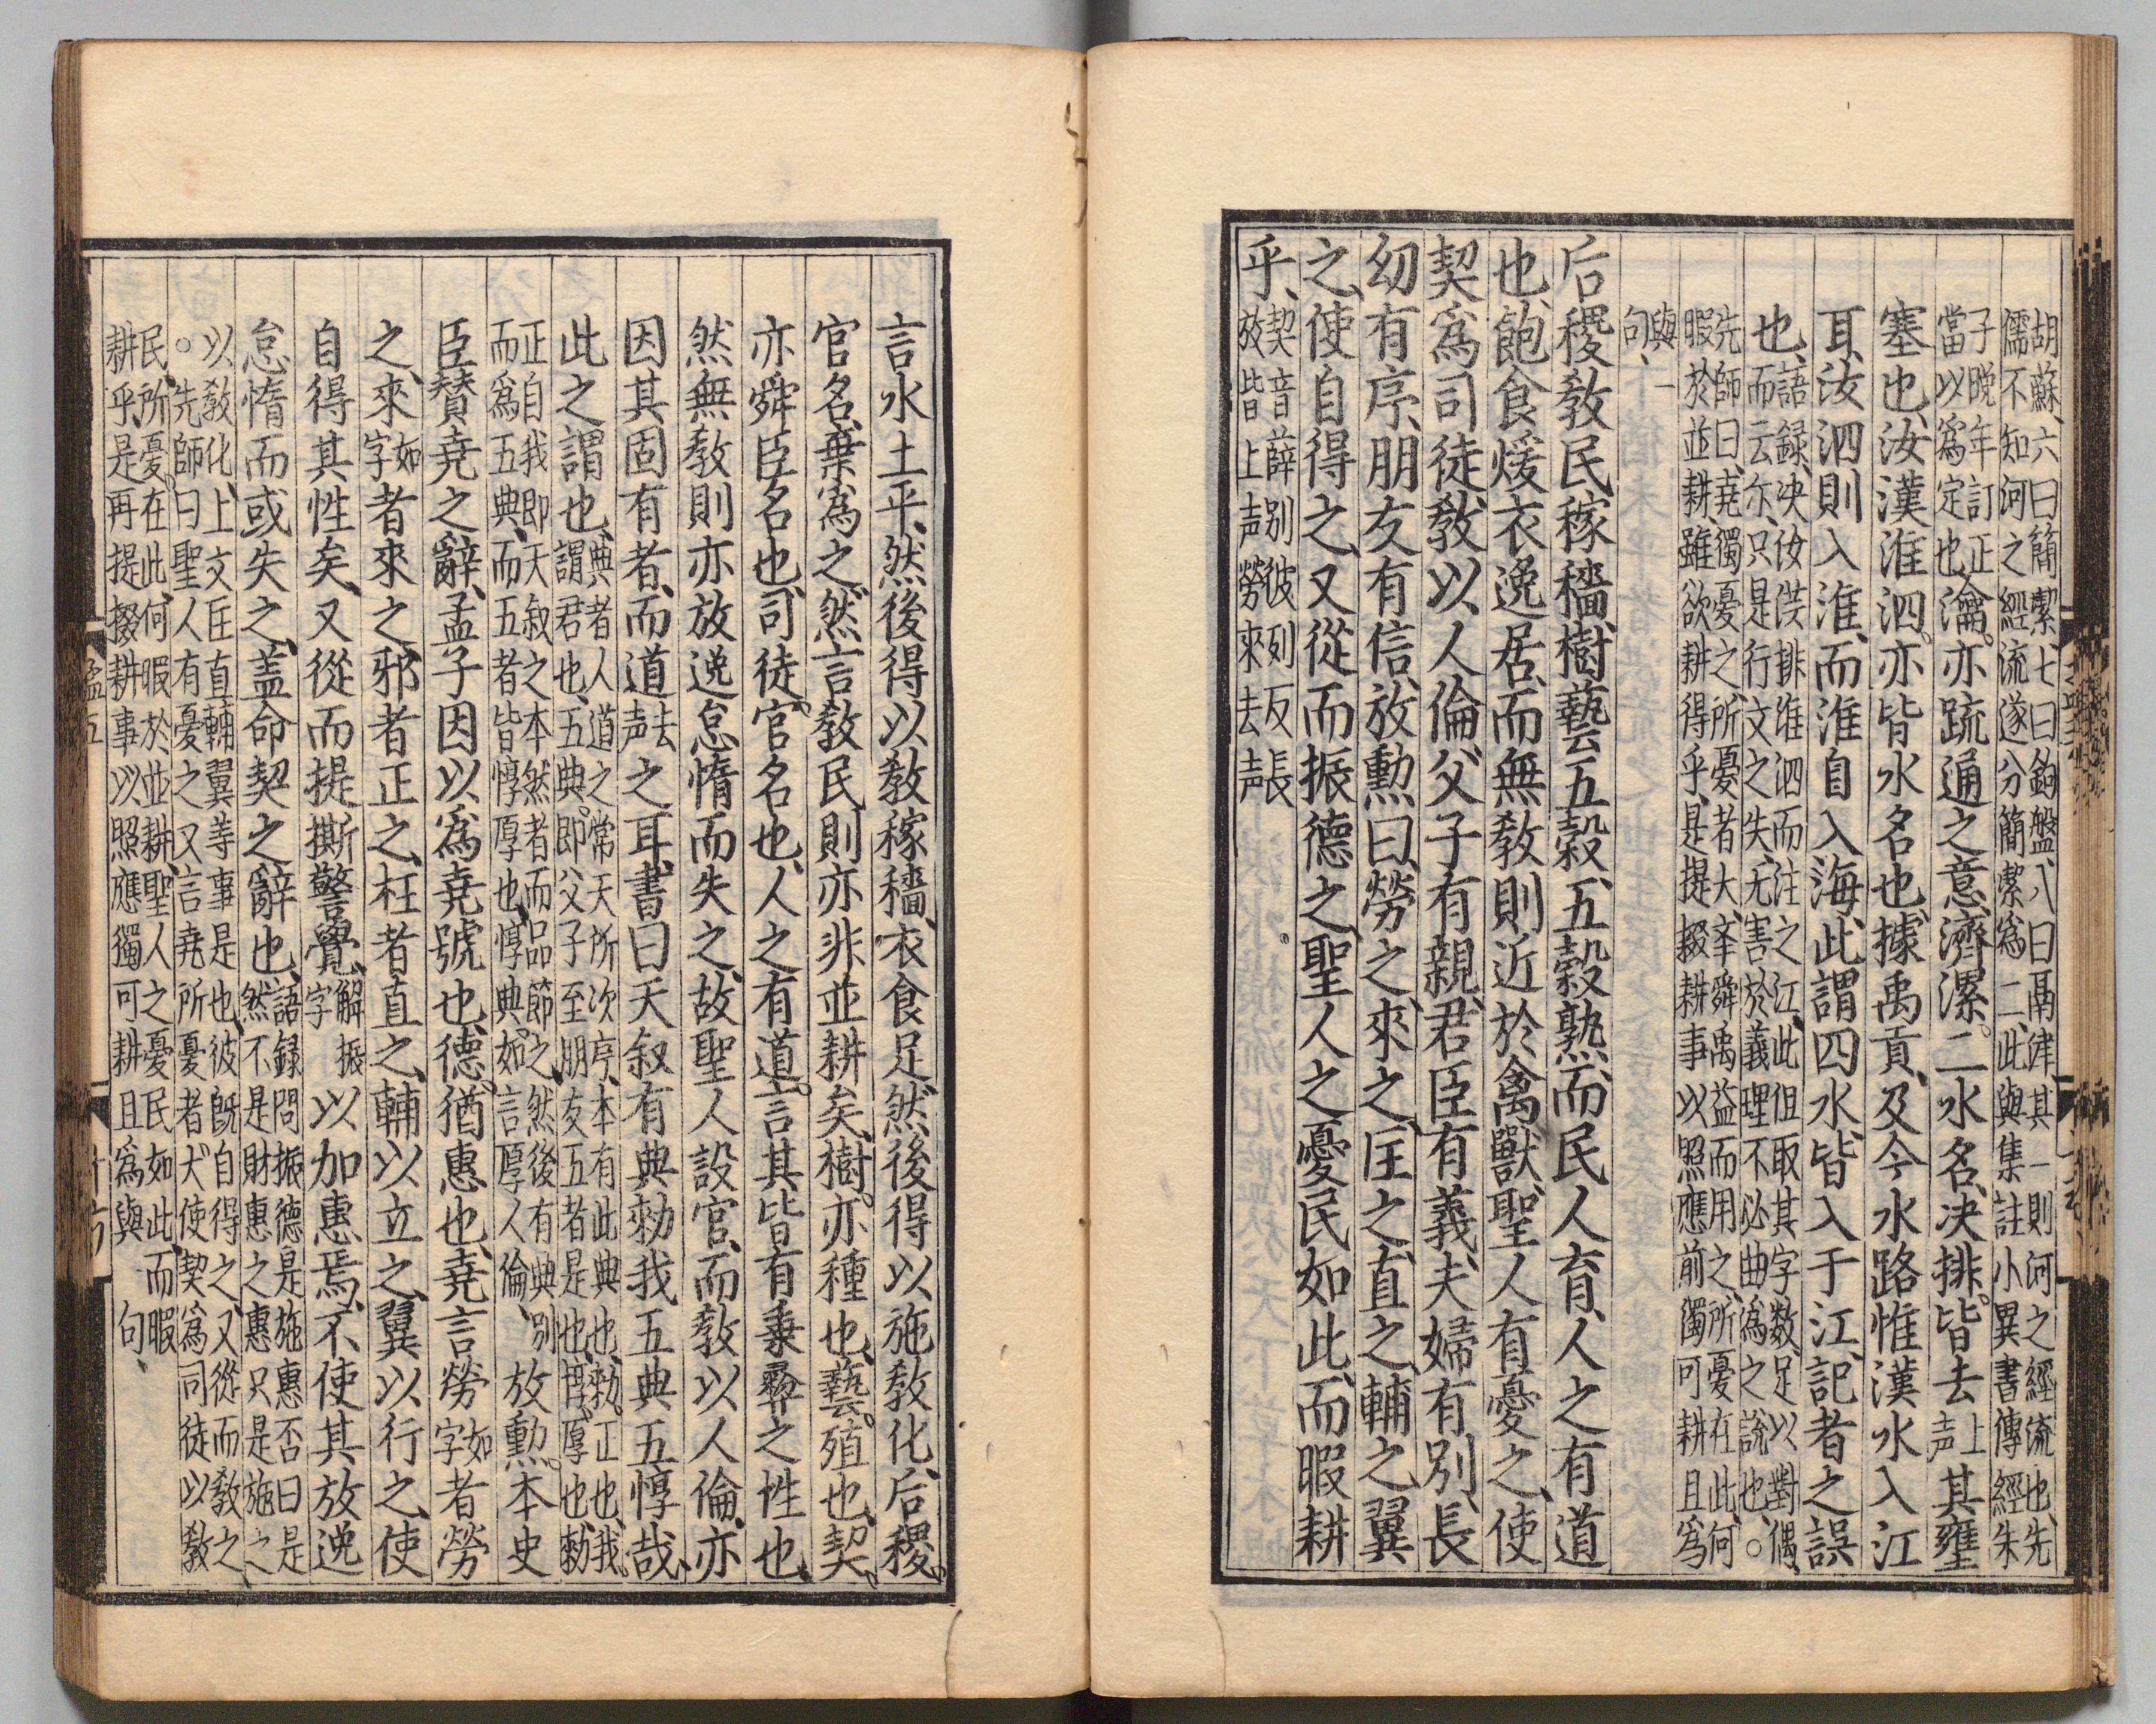 胡蘇、六曰簡潔、七曰鉤盤、八曰鬲津、其一則河之經流也、先
儒不知河之經流、遂分簡潔爲二、此與集註小異、書傳經朱
子晚年訂正、
當以爲定也
瀹。亦疏通之意、濟漯。二水名、决排。皆去
上声
其壅
塞也、汝漢淮泗。亦皆水名也、據禹貢、及今水路、惟漢水入江
耳、汝泗則入淮、而淮自入海、此謂四水、皆入于江、記者之誤
也、
語録、决汝漢、排淮泗、而注之江、此但取其字数足以對偶、
而云尓、只是行文之失、无害於義理、不必曲爲之說也。○
先師曰、堯獨憂之、所憂者大、舉舜禹益而用之、所憂在此、何
暇於並耕、雖欲耕得乎、是提掇耕事、以照應前獨可耕且爲
與一
句、
后稷敎民稼穡、樹藝五穀、五穀熟、而民人育、人之有道
也、飽食煖衣、逸居、而無敎、則近於禽獸、聖人有憂之、使
契爲司徒、敎以人倫、父子有親、君臣有義、夫婦有別、長
幼有序、朋友有信、放勳曰、勞之、來之、匡之、直之、輔之翼
之、使自得之、又從而振德之、聖人之憂民如此、而暇耕
乎、
契音薛、别彼列反、長
放皆上声、勞來去声
言水土平、然後得以敎稼穡、衣食足、然後得以施敎化、后稷。
官名、棄爲之、然言敎民、則亦非並耕矣、樹。亦種也、藝。殖也、契。
亦舜臣名也、司徒。官名也、人之有道。言其皆有秉彝之性也、
然無敎、則亦放逸怠惰而失之、故聖人設官、而敎以人倫、亦
因其固有者、而道
去
声
之耳、書曰、天叙有典、勑我五典、五惇哉、
此之謂也、
典者、人道之常、天所次序、本有此典也、勑。正也、我。
謂君也、五典。即父子至朋友五者是也、惇。厚也、勑
正自我、即天叙之本然者、而品節之、然後有典别
而爲五典、而五者皆惇厚也、惇典。如言厚人倫、
放勳。本史
臣賛堯之辭、孟子因以爲堯號也、德。猶惠也、堯言勞
如
字
者勞
之、來
如
字
者來之、邪者正之、枉者直之、輔以立之、翼以行之、使
自得其性矣、又從而提撕警覺、
解振
字
以加惠焉、不使其放逸
怠惰而或失之、盖命契之辭也、
語録、問振德是施惠否、曰是
然、不是財惠之惠、只是施之
以敎化、上文匡直輔翼等事是也、彼既自得之、又從而敎之、
○先師曰、聖人有憂之、又言堯所憂者、大使契爲司徒、以敎
民、所憂在此、何暇於並耕、聖人之憂民如此、而暇
耕乎、是再提掇耕事、以照應獨可耕且爲與句、
孟五